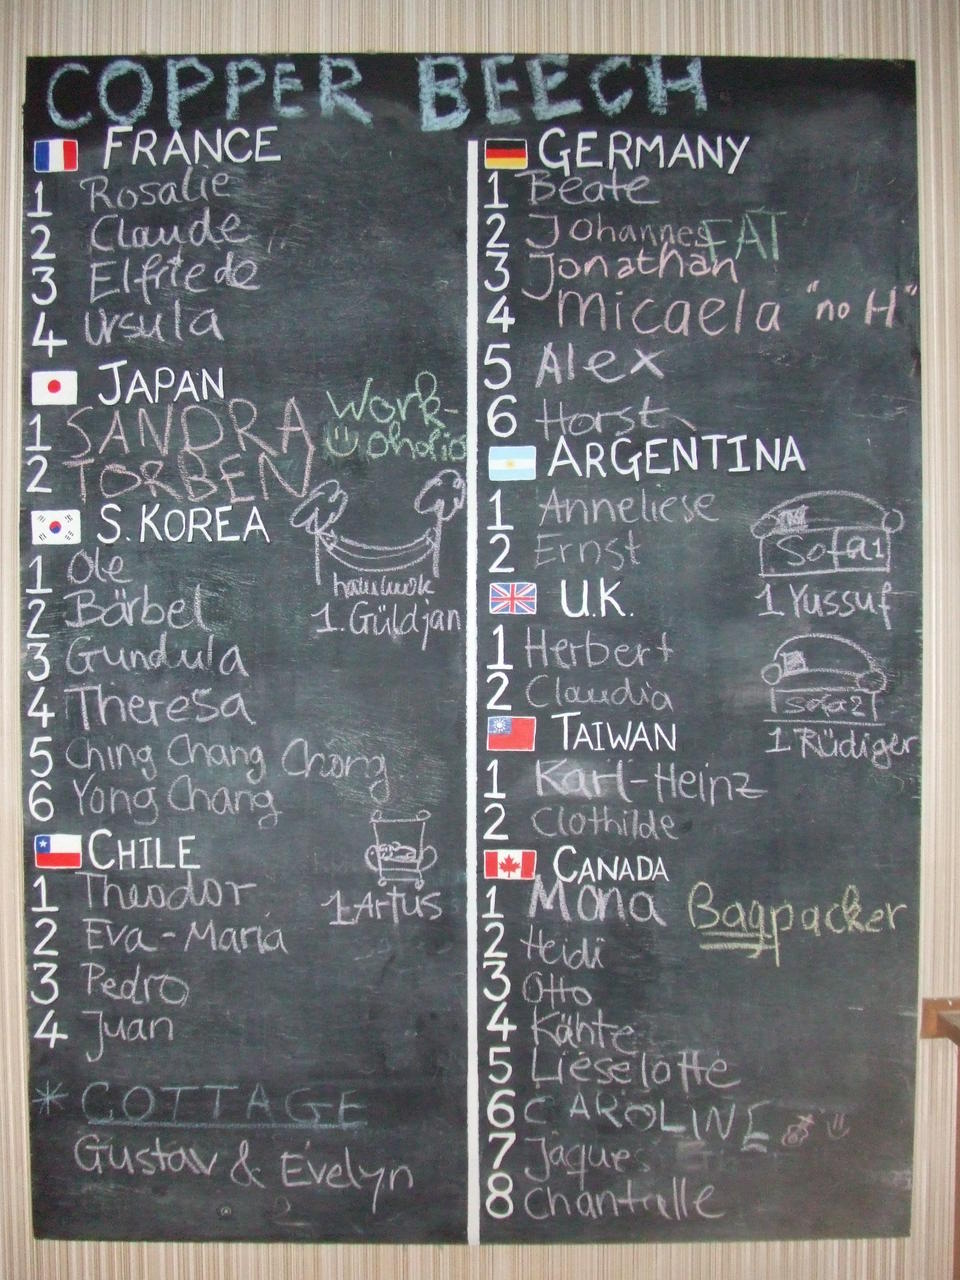 COPPER BEECH
FRANCE
1 Rosalie
2 Claude
3 Elfriede
4 Ursula
JAPAN
1 SANDRA
2 TORBEN
Work-
oholic
S. KOREA
1 Ole
2 Bärbel
3 Gundula
4 Theresa
5 Ching Chang Chong
6 Yong Chang
hammok
1. Güldjan
CHILE
1 Theodor
2 Eva-Maria
3 Pedro
4 Juan
1 Artus
* COTTAGE
Gustav & Evelyn
GERMANY
1 Beate
2 Johannes FAT
3 Jonathan
4 Micaela "no H"
5 Alex
6 Horst
ARGENTINA
1 Anneliese
2 Ernst
Sofa 1
1 Yussuf
U.K.
1 Herbert
2 Claudia
Sofa 2
1 Rüdiger
TAIWAN
1 Karl-Heinz
2 Clothilde
CANADA
1 Mona Bagpacker
2 Heidi
3 Otto
4 Kähte
5 Lieselotte
6 CAROLINE
7 Jaques
8 Chantalle